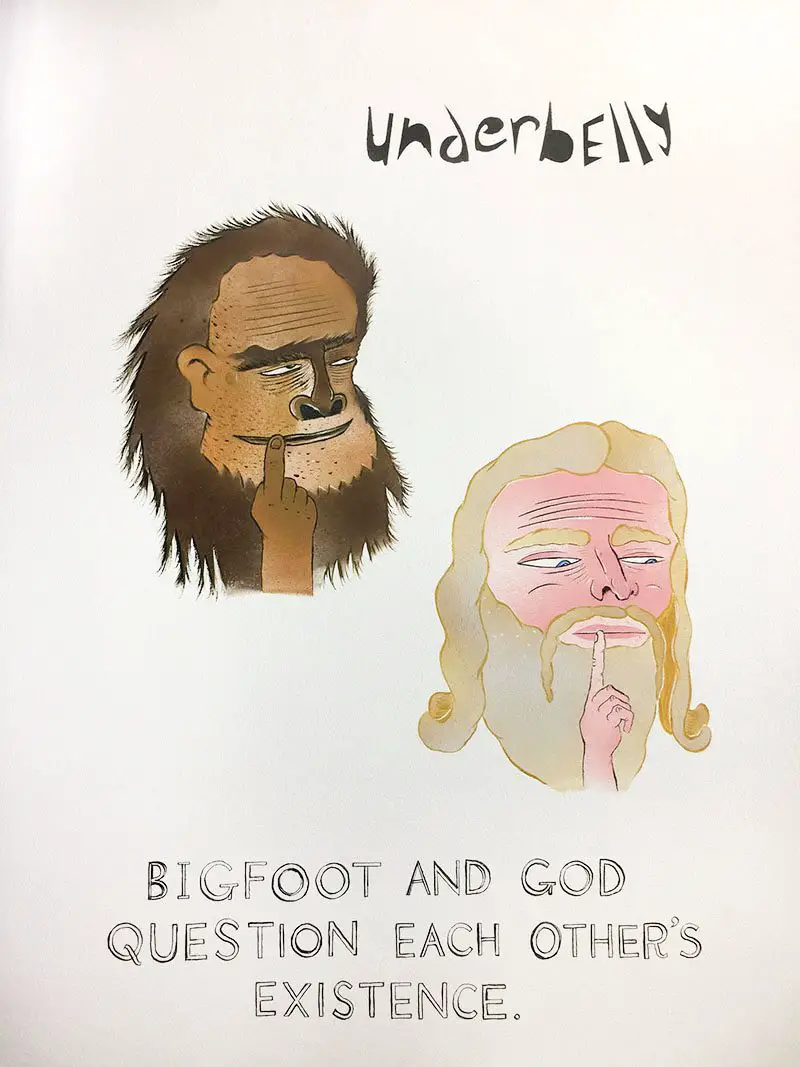 underbElly
BIGFOOT AND GOD
QUESTION EACH OTHER'S
EXISTENCE.